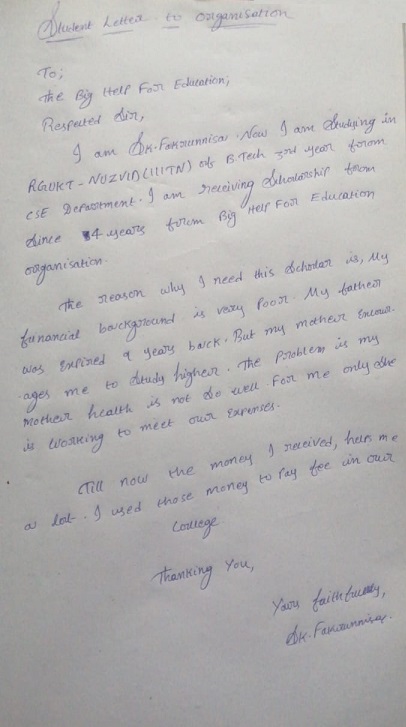 Student Letter to organisation
To;
The Big Help For Education;
Respected Sir,
I am Sk. Fakrunnisa. Now I am studying in
RGUKT - NUZVID (IIITN) of B.Tech 3rd year from
CSE Department. I am receiving scholarship from
since 4 years from Big Help For Education
organisation.
The reason why I need this scholar is, My
financial background is very poor. My father
was expired 9 years back. But my mother encour-
ages me to study higher. The problem is my
mother health is not so well. For me only she
is working to meet our expenses.
Till now the money I received, help me
a lot. I used those money to pay fee in our
College
Thanking You,
Yours faithfully,
Sk. Fakrunnisa.